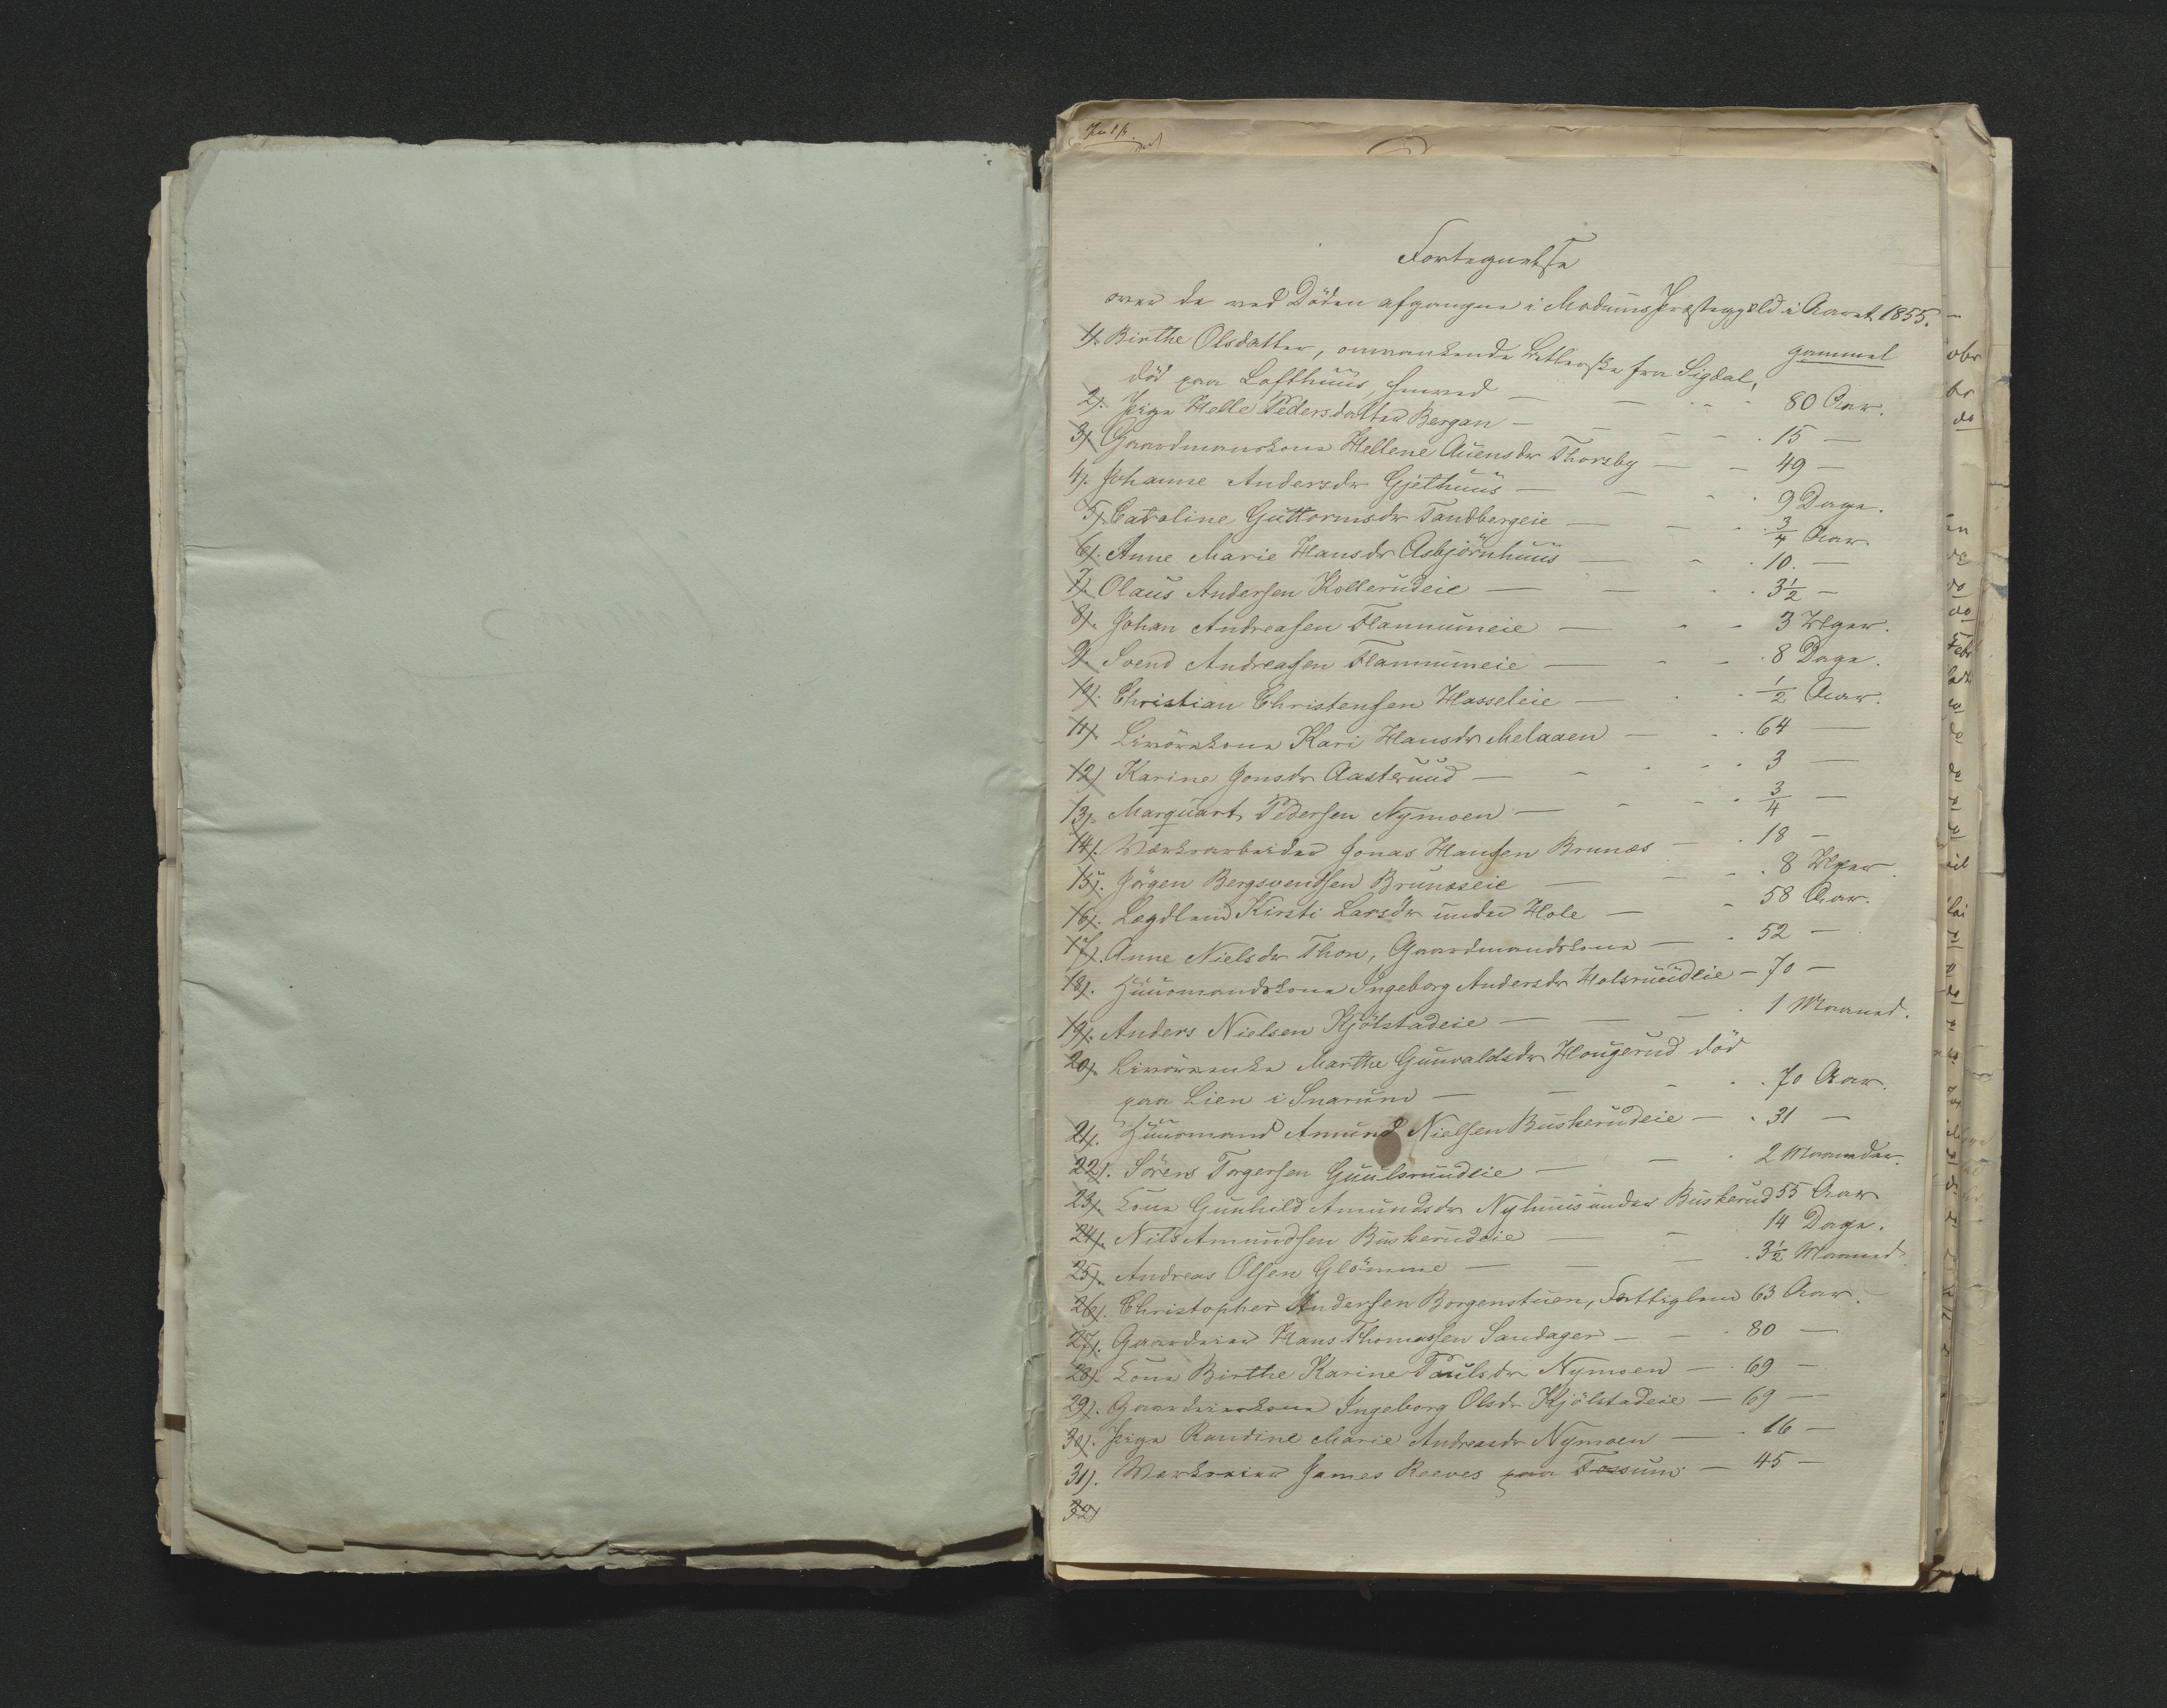 Fortegnelse
over de ved Döden afgangne i Modums Præstegjeld i Aaret 1855.
gammel
1). Birthe Olsdatter, omvankende Betlerske fra Sigdal,
död paa Lofthuus, Snarum — 80 Aar.
2). Pige Helle Pedersdatter Bergan — 15 —
3) Gaardmandskone Hellene Auensdr Thorsby — 49 —
4). Johanne Andersdr Gjethuus — 9 Dage.
5) Caroline Guttormsdr Tandbergeie — 3/4 Aar
6). Anne Marie Hansdr Asbjörnhuus — 10. —
7). Olaus Andersen Kollerudeie — 3 1/2 —
8). Johan Andreasen Flannumeie — 3 Uger.
9. Svend Andreasen Flannumeie — 8 Dage.
10). Christian Christensen Hasseleie — 1/2 Aar.
11). Kone Kari Hansdr Melaaen — 64 —
12) Karine Jonsdr Aasteruud — 3 —
13). Marquart Pedersen Nymoen — 3/4 —
14). Værksarbeider Jonas Hansen Brunæs — 18 —
15). Jörgen Bergsvendsen Brunæseie — 8 Uger.
16). Lægdlem Kirsti Larsdr under Hole — 58 Aar.
17). Anne Nielsdr Thon, Gaardmandskone — 52 —
18). Huusmandskone Ingeborg Andersdr Holsruudeie — 70 —
19). Anders Nielsen Kjölstadeie — 1 Maaned.
20). Marthe Gunvaldsdr Hougerud död
paa Lien i Snarum — 70 Aar.
21). Huusmand Amund Nielsen Buskerudeie — 31 —
22). Sörens Torgersen Guulsruudeie — 2 Maaneder.
23). Kone Gunhild Amundsdr Nyhuus under Buskerud 55 Aar
24). Nils Amundsen Buskerudeie — 14 Dage.
25). Andreas Olsen Glömme — 3 1/2 Maaned.
26). Christopher Andersen Borgenstuen, Fattiglem 63 Aar.
27). Gaardeier Hans Thomassen Sandager — 80 —
28). Kone Birthe Karine Paulsdr Nymoen — 69 —
29). Gaardeierkone Ingeborg Olsdr Kjölstadeie — 69 —
30). Pige Randine Marie Andreasdr Nymoen — 16 —
31). Værkseier James Reeves paa Fossum — 45 —
32)